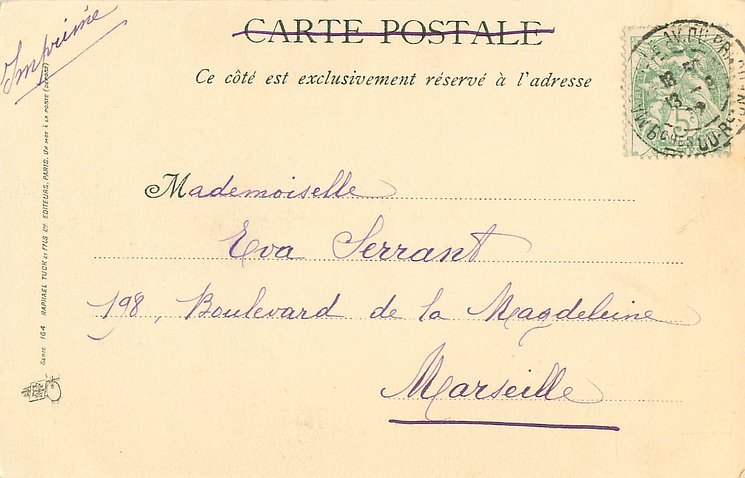 Imprimé
CARTE POSTALE
Ce côté est exclusivement réservé à l'adresse
Mademoiselle
Eva Serrant
198, Boulevard de la Magdeleine
Marseille
SERIE 164 RAPHAEL TUCK ET FILS LTD EDITEURS, PARIS. UN MOT À LA POSTE (DÉPOSÉ)
AV. DU
13
5